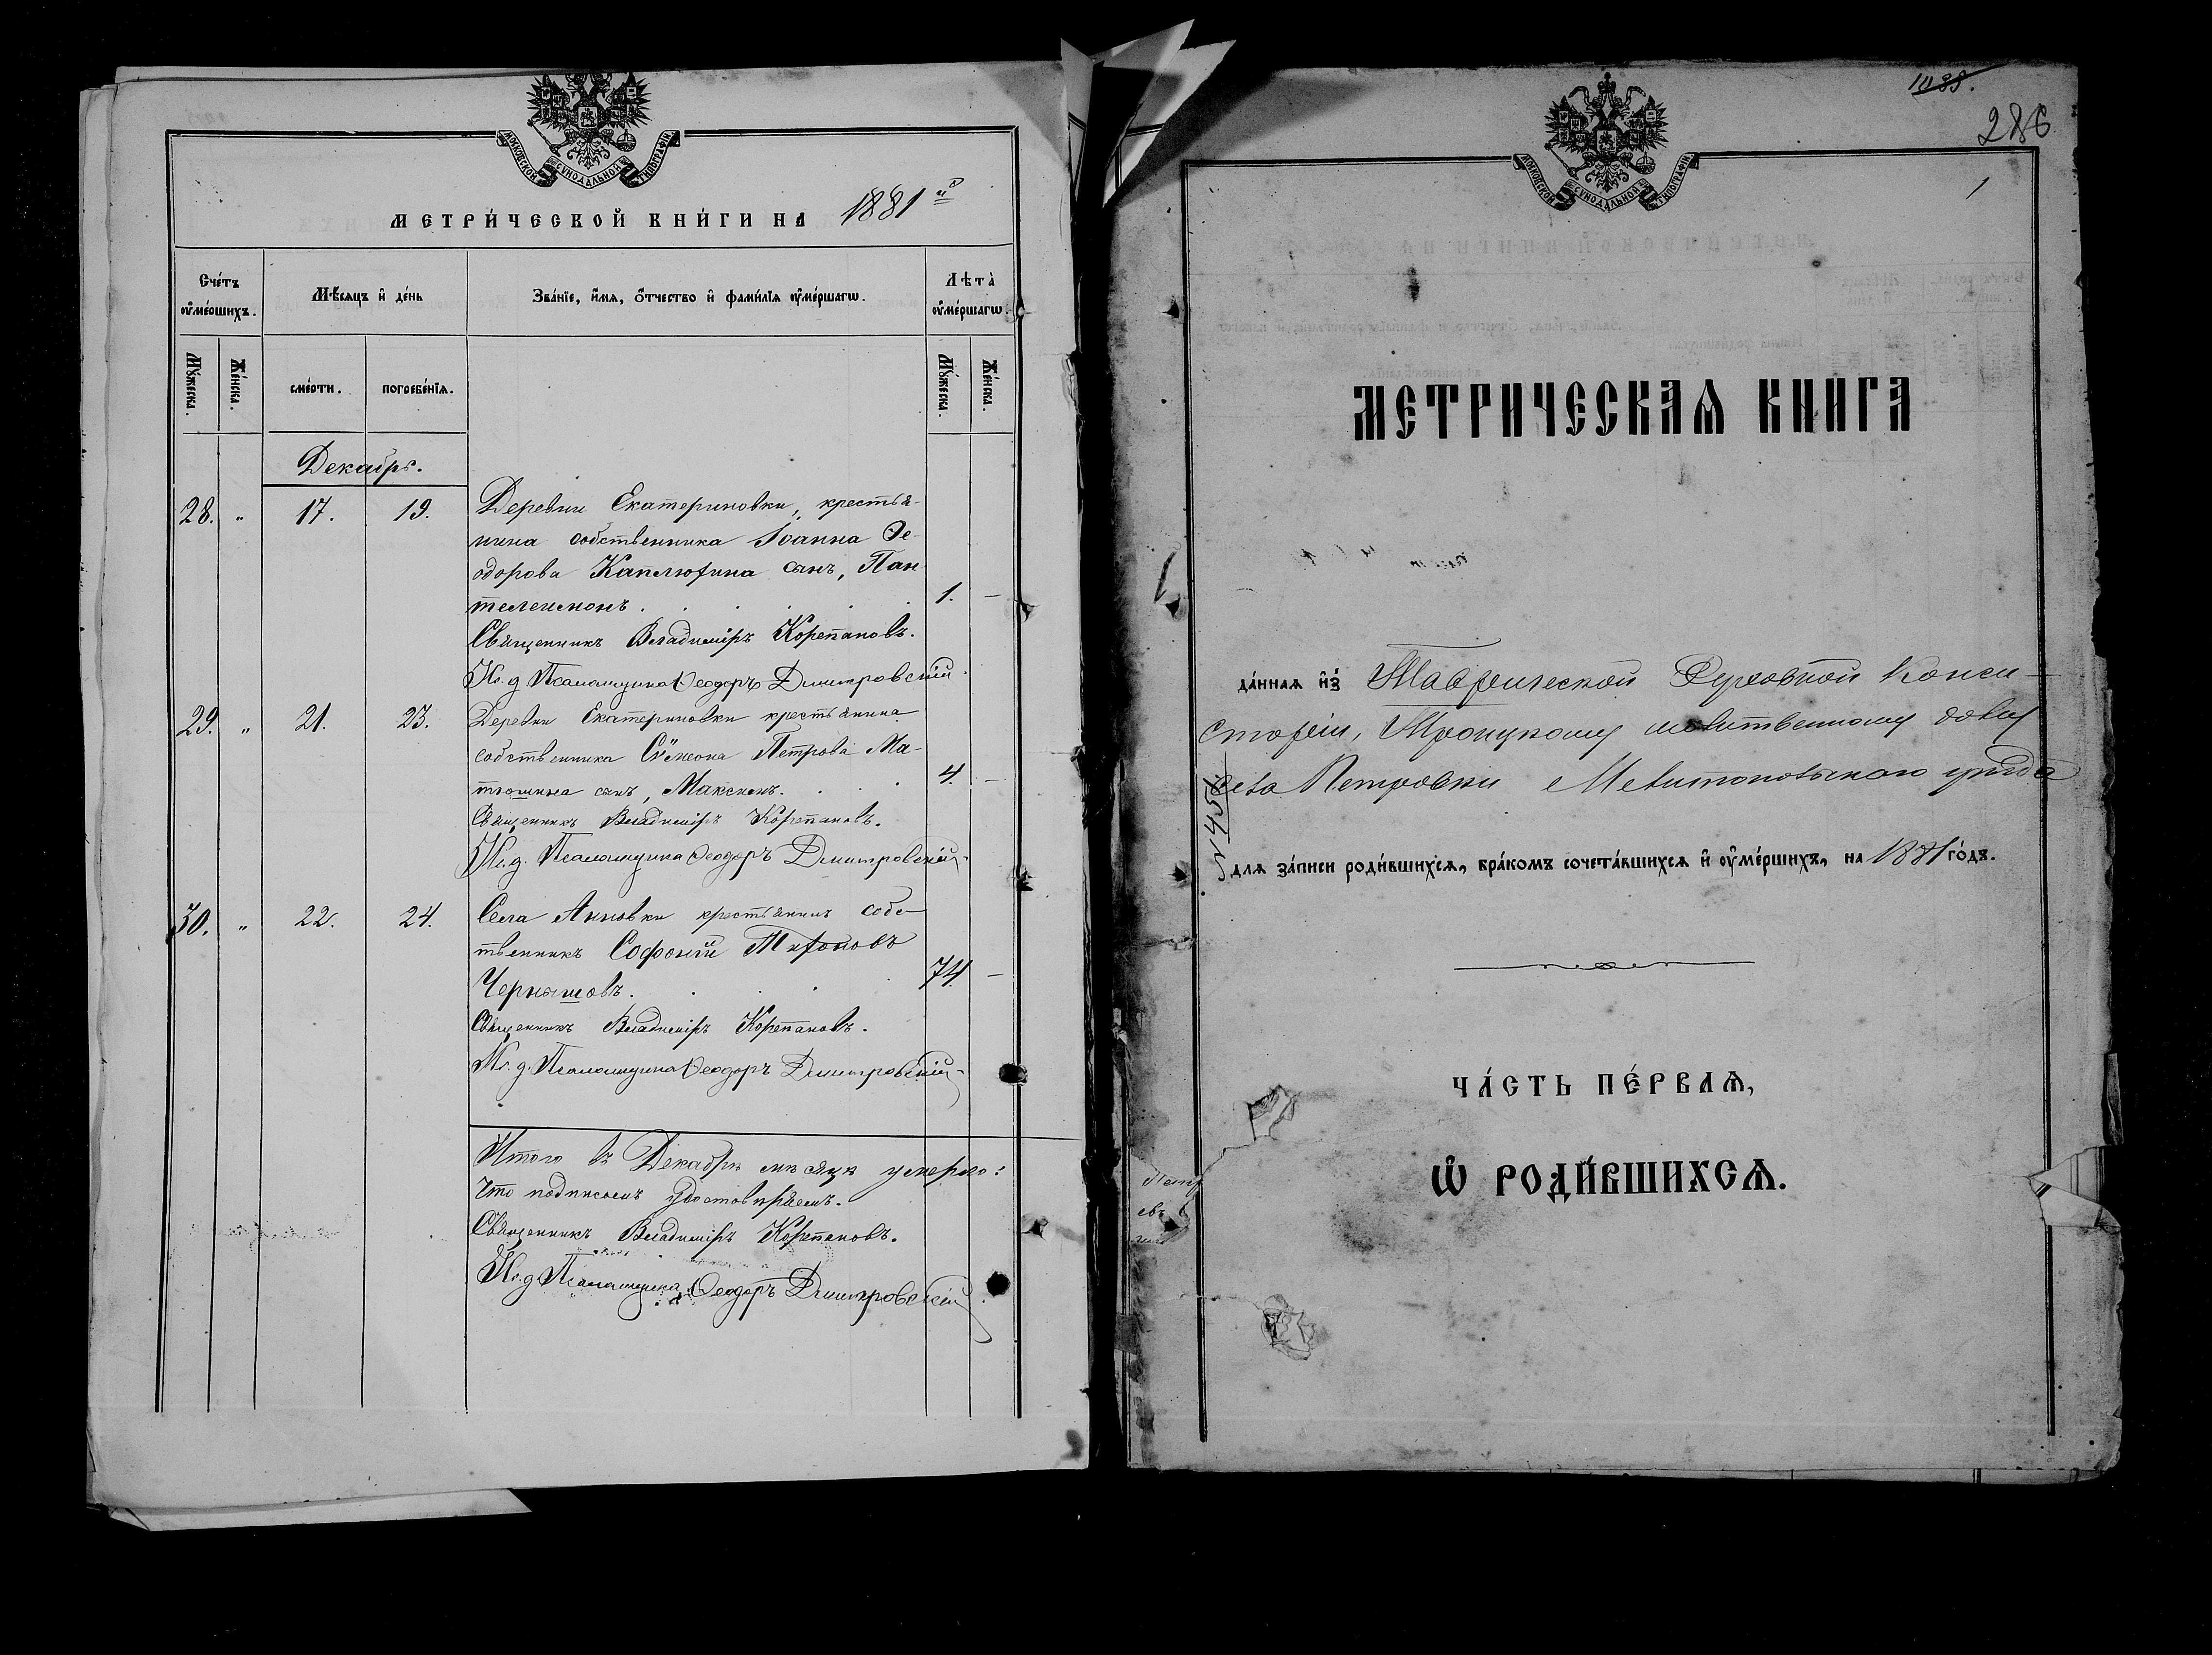 МОСКОВСКОЙ СѴНОДАЛЬНОЙ ТИПОГРАФІИ
МЕТРИ́ЧЕСКОЙ КНИ́ГИ НА 1881 й
Сче́тъ ᲂу҆ме́ршихъ.
Мѣ́сяцъ и҆ де́нь
Зва́нїе, и҆́мя, ѻ҆́тчество и҆ фами́лїя ᲂу҆ме́ршагѡ.
Лѣта̀ ᲂу҆ме́ршагѡ.
Мꙋ́жеска. Же́нска. сме́рти. погребе́нїя. Мꙋ́жеска. Же́нска.
Декабрь.
28. " 17. 19. Деревни Екатериновки, крестья-
нина собственника Іоанна Ѳе-
одорова Капелюгина сынъ, Пан-
телеимонъ. 1. —
Священникъ Владиміръ Корепановъ.
И. д. Псаломщика Ѳеодоръ Дмитровскій.
29. " 21. 23. Деревни Екатериновки крестьянина
собственника Сѵмеона Петрова Ма-
тюшина сынъ, Максимъ. 4. —
Священникъ Владиміръ Корепановъ.
И. д. Псаломщика Ѳеодоръ Дмитровскій.
30. " 22. 24. Села Анновки крестьянинъ собс-
твенникъ Софоній Миѳоновъ
Черняшовъ. 74. —
Священникъ Владиміръ Корепановъ.
И. д. Псаломщика Ѳеодоръ Дмитровскій.
Итого въ Декабрѣ мѣсяцѣ умерло:
Что подписомъ удостовѣряемъ.
Священникъ Владиміръ Корепановъ.
И. д. Псаломщика Ѳеодоръ Дмитровскій.
286
1
МОСКОВСКОЙ СѴНОДАЛЬНОЙ ТИПОГРАФІИ
МЕТРИЧЕСКАѦ КНИГА
да́нная и҆з̾ Таврической Духовной Конси-
сторіи, Троицкому молитвенному дому
села Петровки Мелитопольскаго уѣзда
для за́писи роди́вшихся, бра́комъ сочета́вшихся и҆ ᲂу҆ме́ршихъ, на 1881 го́дъ.
ЧА́СТЬ ПЕ́РВАѦ,
Ѡ҆ РОДИ́ВШИХСѦ.